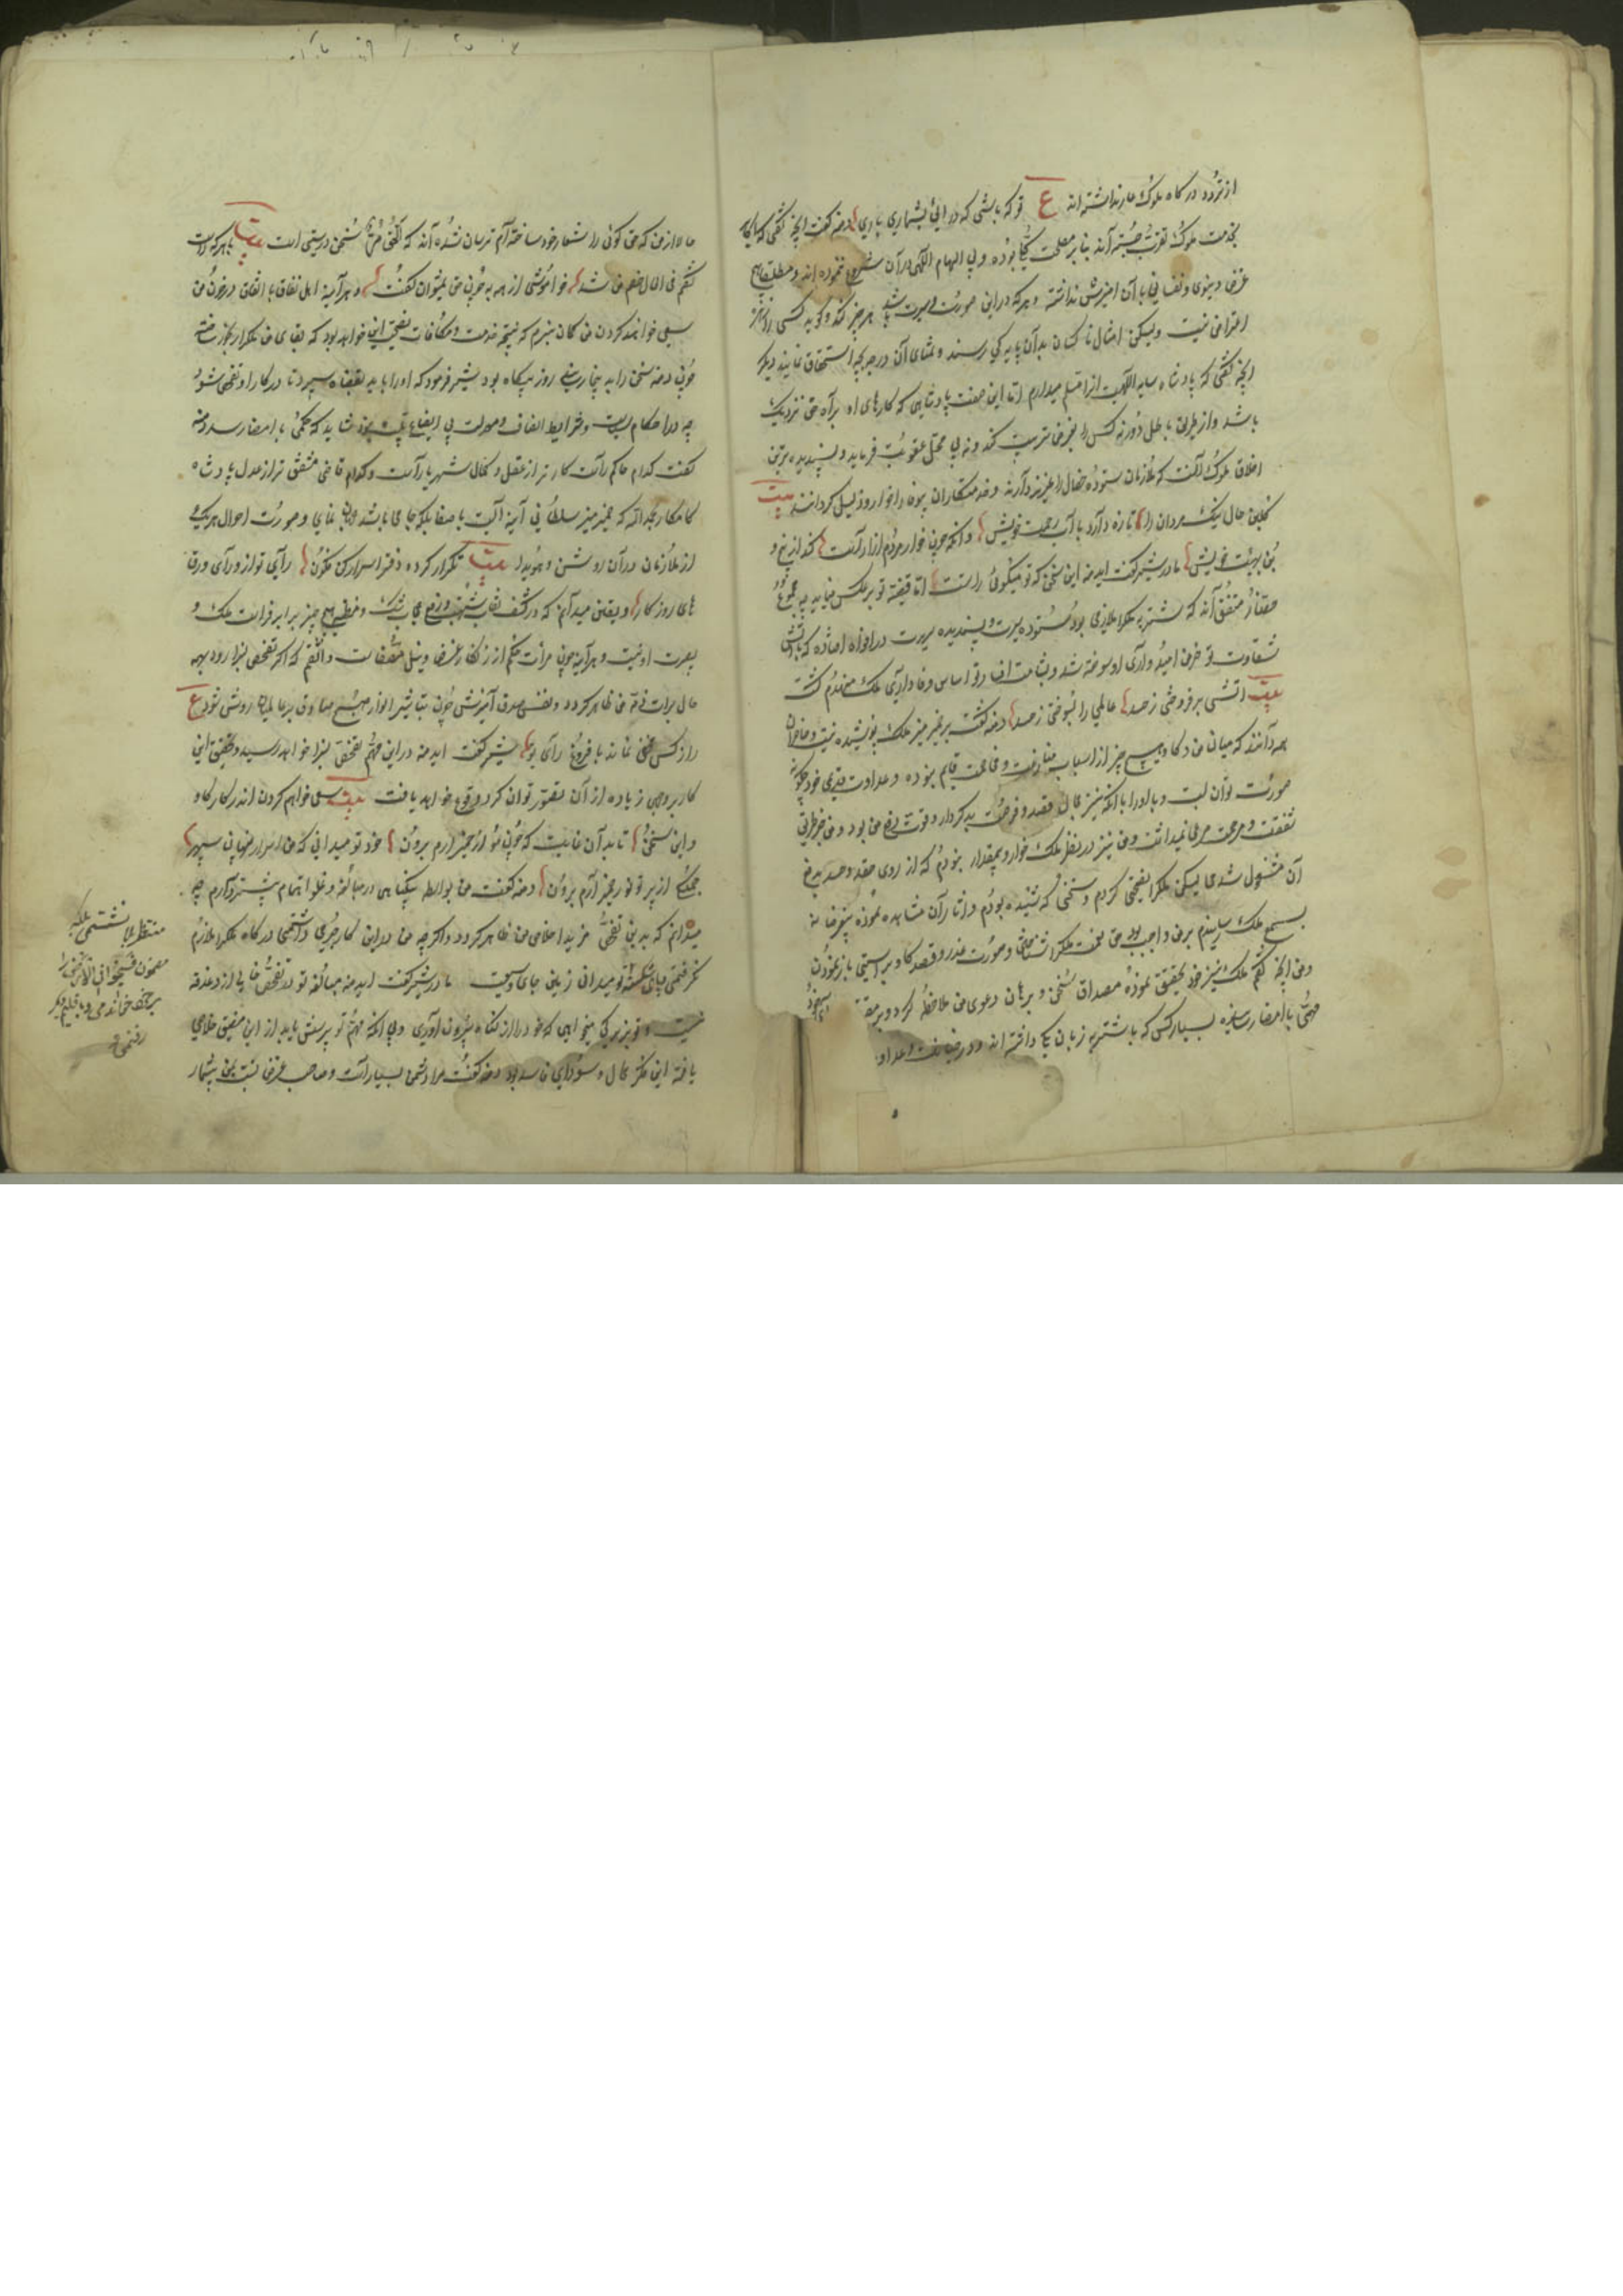 از تردد درگاه ملوک عار نداشته اند ع تو که باشی که در آئی بشماری باری دمنه گفت آنچه گفتی که
بخدمت ملوک تقرب جسته اند بنا بر مصلحت کلی بوده و بی الهام الهی در آن شروع ننموده اند و مطلقا هیچ
غرض دنیوی و نفسانی با آن آمیزش نداشته و هر که در این صورت و سیرت باشد هر چیز کند و گوید کسی را
اعتراض نیست ولیکن امثال ما کسان بدان پایه کی رسند و تمنای آن درجه بچه استحقاق نمایند دیگر
آنچه گفتی که پادشاه سایه الهیست از آن مسلم میدارم اما این صفت پادشاهی که کارهای او براه حق نزدیک
باشد و از طریق باطل دور نه کس را بغرض تربیت کند و نه بی محل عقوبت فرماید و پسندیده ترین
اخلاق ملوک آنست که ملازمان ستوده خصال را عزیز دارند و خدمتکاران بیوفا را خوار و ذلیل گردانند بیت
گلبن حال نیک مردان را تازه دارد بآب رحمت خویش وانکه چون خار مردم آزار است کند از بیخ و
بن بهیبت خویش مادر شیر گفت ای دمنه این سخن که تو میگوئی راستست اما قضیه تو برعکس مینماید چه مجموع
حضار متفق اند که شنزبه ملک را ملازمی بود ستوده سیرت و پسندیده سریرت در افواه افتاده که بآتش
سعایت تو خرمن امید و آرای او سوخته شد و بشامت افساد تو اساس وفاداری ملک منهدم گشت
بیت آتشی بر فروختی ز حسد عالمی را بسوختی ز حسد دمنه گفت بر ضمیر منیر ملک پوشیده نیست و حاضران
همه دانند که میان من و گاو هیچ چیز از اسباب منازعت و مخاصمت قایم نبوده و عداوت قدیمی خود چگونه
صورت توان بست و با او را با آنکه نیز مجال قصد و فرصت بد کردار و قوت دفع من بود و من جز طریق
شفقت و مرحمت مرعی نمیداشت و من نیز در نظر ملک خوار و بیمقدار نبودم که از روی حقد و حسد بدفع
آن مشغول شدمی لیکن ملک را نصیحتی کردم و سخنی که شنیده بودم و آثار آن مشاهده نموده بیغرضانه
بسمع ملک رسانیدم برمن واجب بود حق نعمت ملک را شناختن و صورت غدر و قصد گاو براستی باز نمودن
و من آنچه گفتم ملک نیز خود تحقیق نموده مصداق سخن و برهان دعوی من ملاحظه کرد و بر مقتضای
مهمی بامضا رسانیده بسیار کس که با شنزبه زبان یکی داشته اند و در خیانت و عداوت
حالا از من که حق گوئی را شعار خود ساخته ام ترسان شده اند که الحق مر سخن درستی است بیت با هر که راست
گفتم فی الحال خصم من شد خاموشی از همه به چون حق نمیتوان گفت و هر آینه اهل نفاق باتفاق در خون من
سعی خواهند کردن من گمان نبرم که نتیجه خدمت و مکافات نصیحت این خواهد بود که بقای من ملک را رنجور ساخته
چون دمنه سخن را بدینجا رسانید روز بیگاه بود شیر فرمود که او را باید بقضاة سپرد تا در کار او تفحص شود
چه در احکام سیاست و شرایط انصاف و معدلت بی ایضاح بینه نشاید که حکمی بامضا رسد دمنه
گفت کدام حاکم راست کارتر از عقل و کمال شهریار است و کدام قاضی مشفق تر از عدل پادشاه
کامکار بحمد الله که ضمیر منیر سلطانی آینه ایست با صفا بلکه جامی باشد جهان نمای و صورت احوال هر یک
از ملازمان در آن روشن و هویدا بیت تکرار کرده دفتر اسرار کن فکون رأی تو از ورای ورق
های روزگار و یقین میدانم که در کشف نقاب شبهت و رفع حجاب شک و ظن هیچ چیز برابر فراست ملک و
بصیرت او نیست و هر آینه چون مرآت حکم از زنگار غرض و میل مصفاست واثقم که اگر تفحص بسزا رود همه
حال برات ذمه من ظاهر گردد و نفس صدق آمیزش چون تباشیر انوار صبح صادق بر عالمیان روشن شود ع
راز کس مخفی نماند با فروغ رأی تو شیر گفت ای دمنه در این مهم تفحص بسزا خواهد رسید و تحقیق این
کار بروجهی زیاده از آن تصور توان کرد وقوع خواهد یافت بیت سعی خواهم کردن اندر کار گاو
و این سخن تا بدان غایت که چون مو از خمیر آرم برون خود تو میدانی که من اسرار پنهان سپهر
جملگی از پرتو نور ضمیر آرم برون دمنه گفت من بواسطه بیگناهی در مبالغه و غلو اتمام بیشتر دارم چه
میدانم که بدین تفحص مزید اخلاص من ظاهر گردد و اگر چه من در این کار جرمی داشتمی درگاه ملک را ملازم
نگرفتمی و پای شکسته تو میدانی زمین جای وسیعست مادر شیر گفت ای دمنه مبالغه تو در تفحص خالی از دغدغه
نیست و تو بزیرکی میخواهی که خود را از گناه بیرون آوری و بی آنکه مهم تو پرسش یابد از این مضیق خلاصی
یافته این فکر محال و سودای فاسد بود دمنه گفت مرا دشمن بسیار است و صاحب غرض نسبت بمن بیشمار
منتظر بلا ننشستمی بلکه
مضمون فسیحوا فی الارض را
برخود خواندمی و باقلیم دیگر
رفتمی